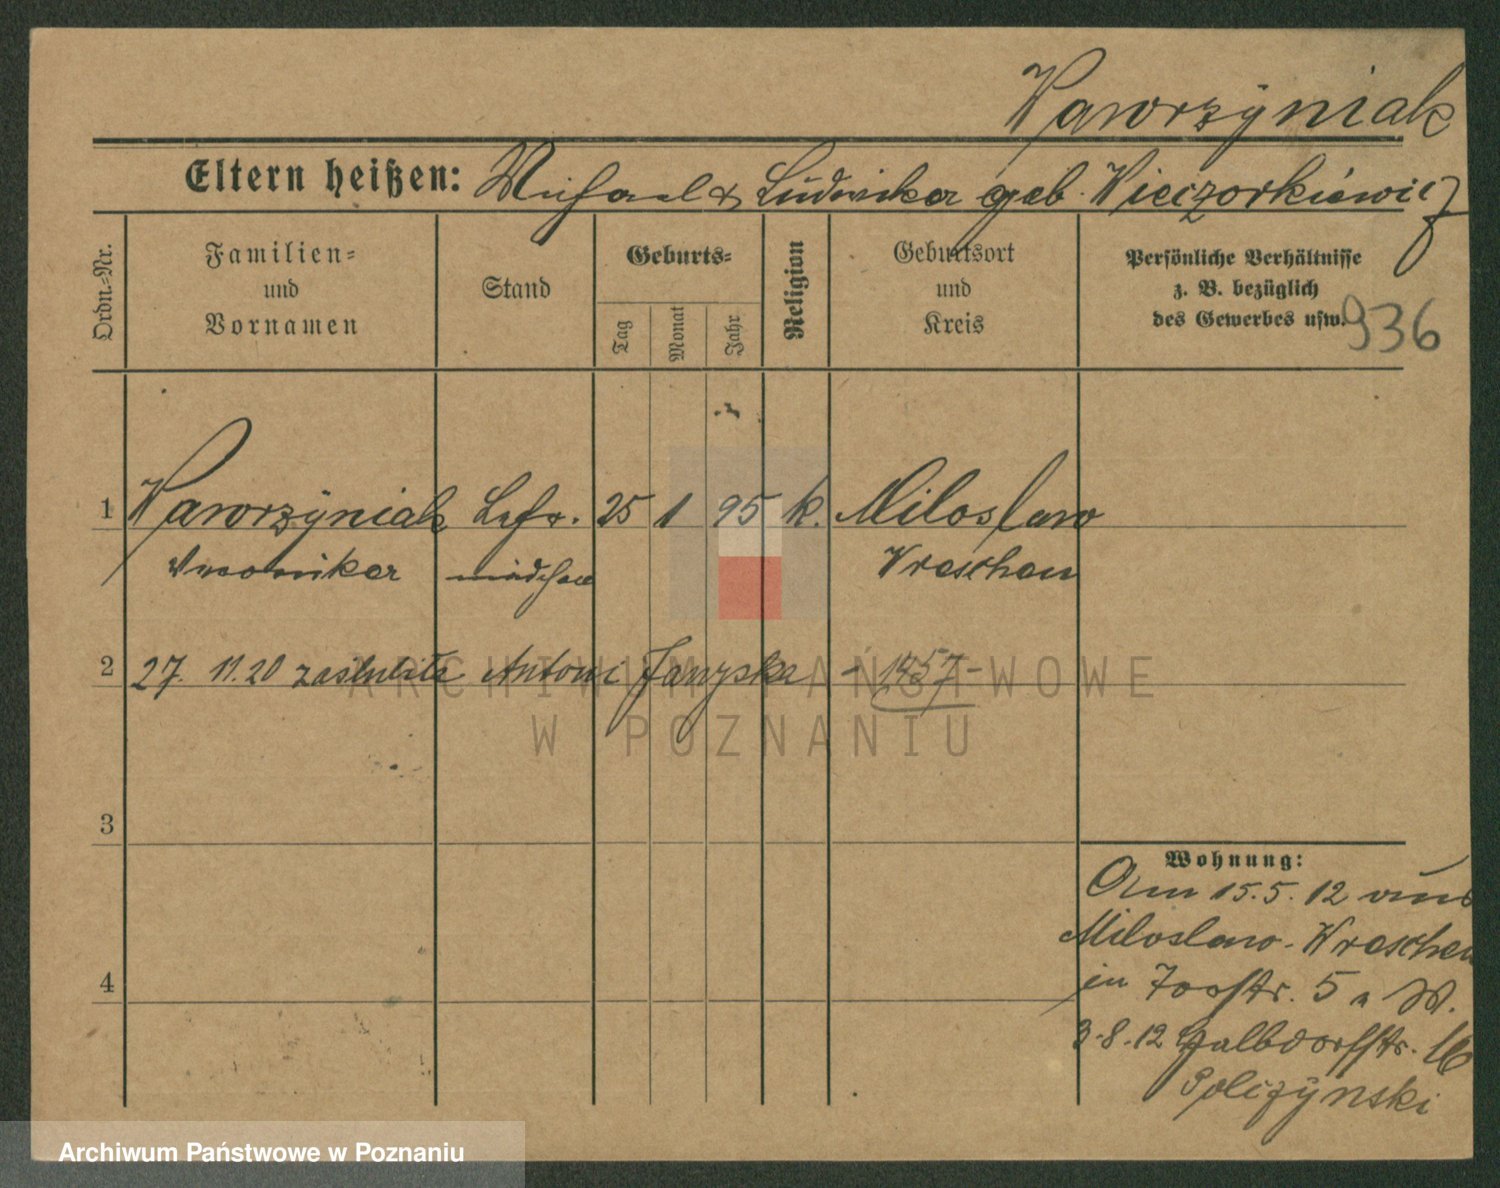 Wawrzÿniak
Eltern heißen: Michael & Ludwika geb. Wieczorkiewicz
Ordn.-Nr.
Familien-
und
Vornamen
Stand
Geburts-
Tag
Monat
Jahr
Religion
Geburtsort
und
Kreis
Persönliche Verhältnisse
z. B. bezüglich
des Gewerbes usw.
936
1 Wawrzÿniak Lehr. 25 1 95 k. Miloslaw
Veronika mädchen Wreschen
2 27. 11. 20 zaślubiła Antoni - 1457 -
3
Wohnung:
Am 15.5.12 aus
Miloslaw-Wreschen
4
in 5 a W.
3.8.12 Halbdorfstr. 16
ARCHIWUM PAŃSTWOWE
W POZNANIU
Archiwum Państwowe w Poznaniu